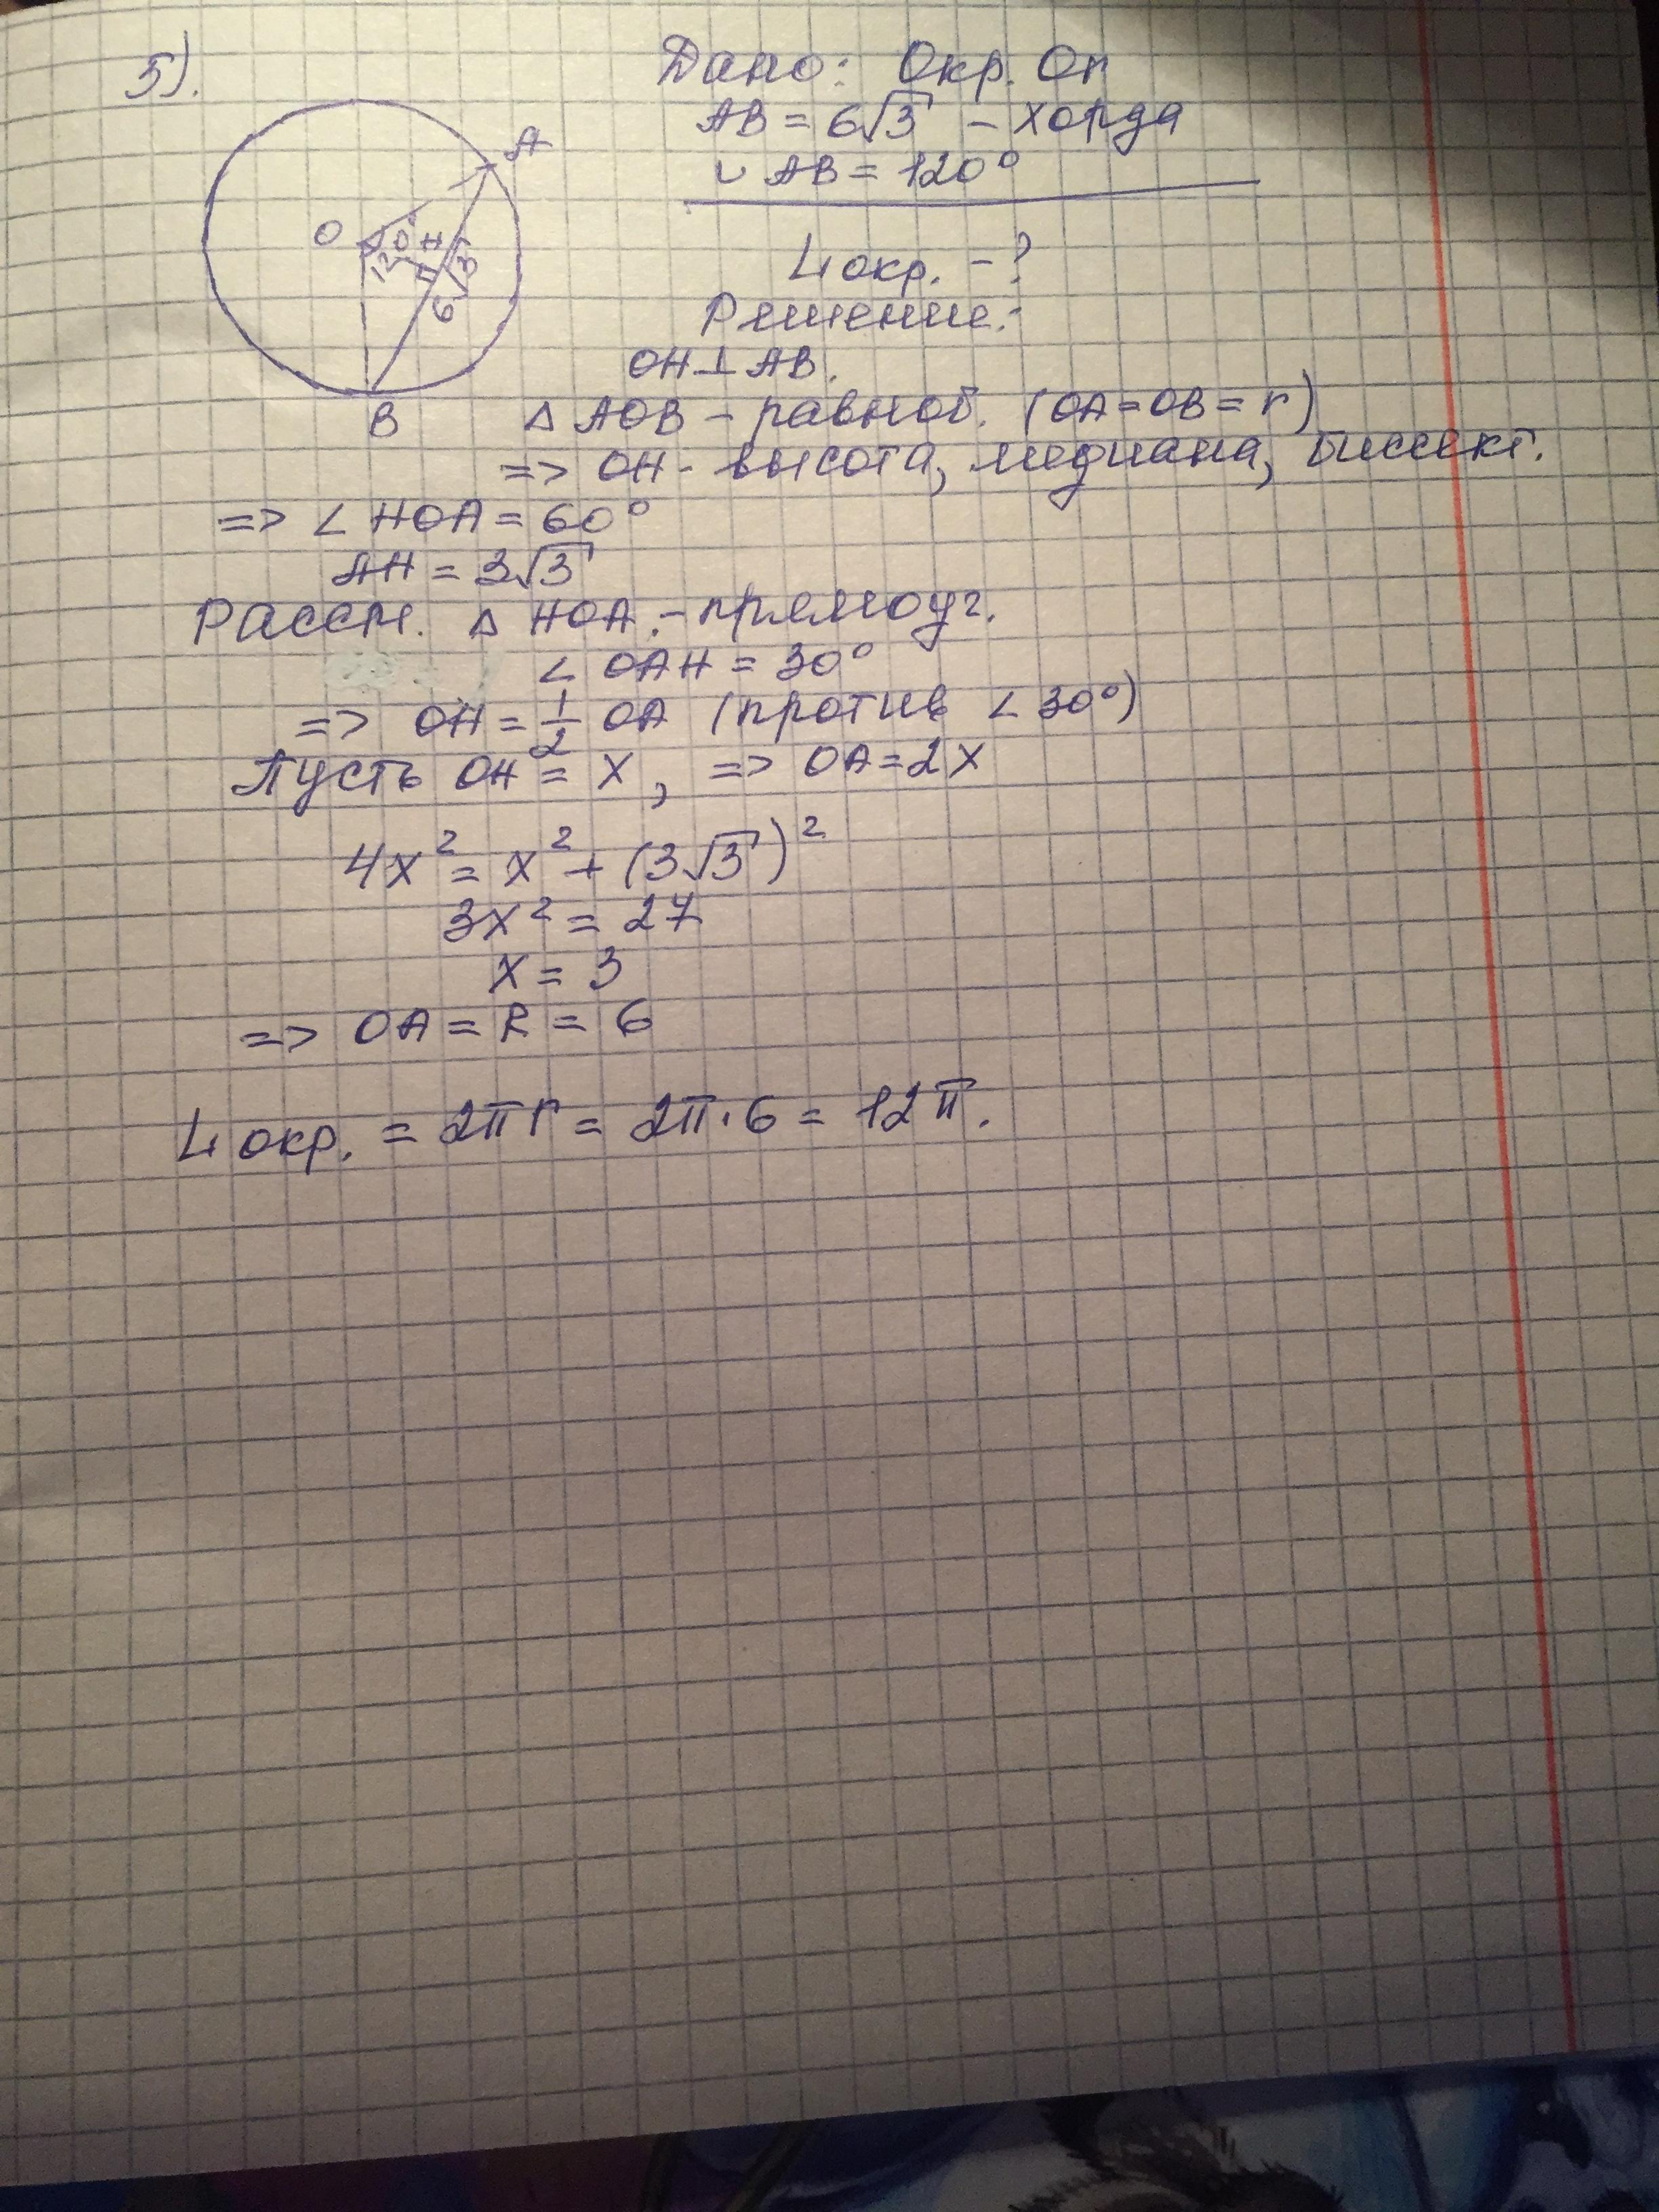 5).
Дано: Окр. Or
AB = 6√3 - хорда
◡ AB = 120°
A
O
120°
H
6√3
B
L окр. - ?
Решение:
OH ⊥ AB.
△ AOB - равноб. (OA = OB = r)
=> OH - высота, медиана, биссект.
=> ∠ HOA = 60°
AH = 3√3
Рассм. △ HOA - прямоуг.
∠ OAH = 30°
=> OH = 1/2 OA (против ∠ 30°)
Пусть OH = x, => OA = 2x
4x² = x² + (3√3)²
3x² = 27
x = 3
=> OA = R = 6
L окр. = 2πr = 2π·6 = 12π.